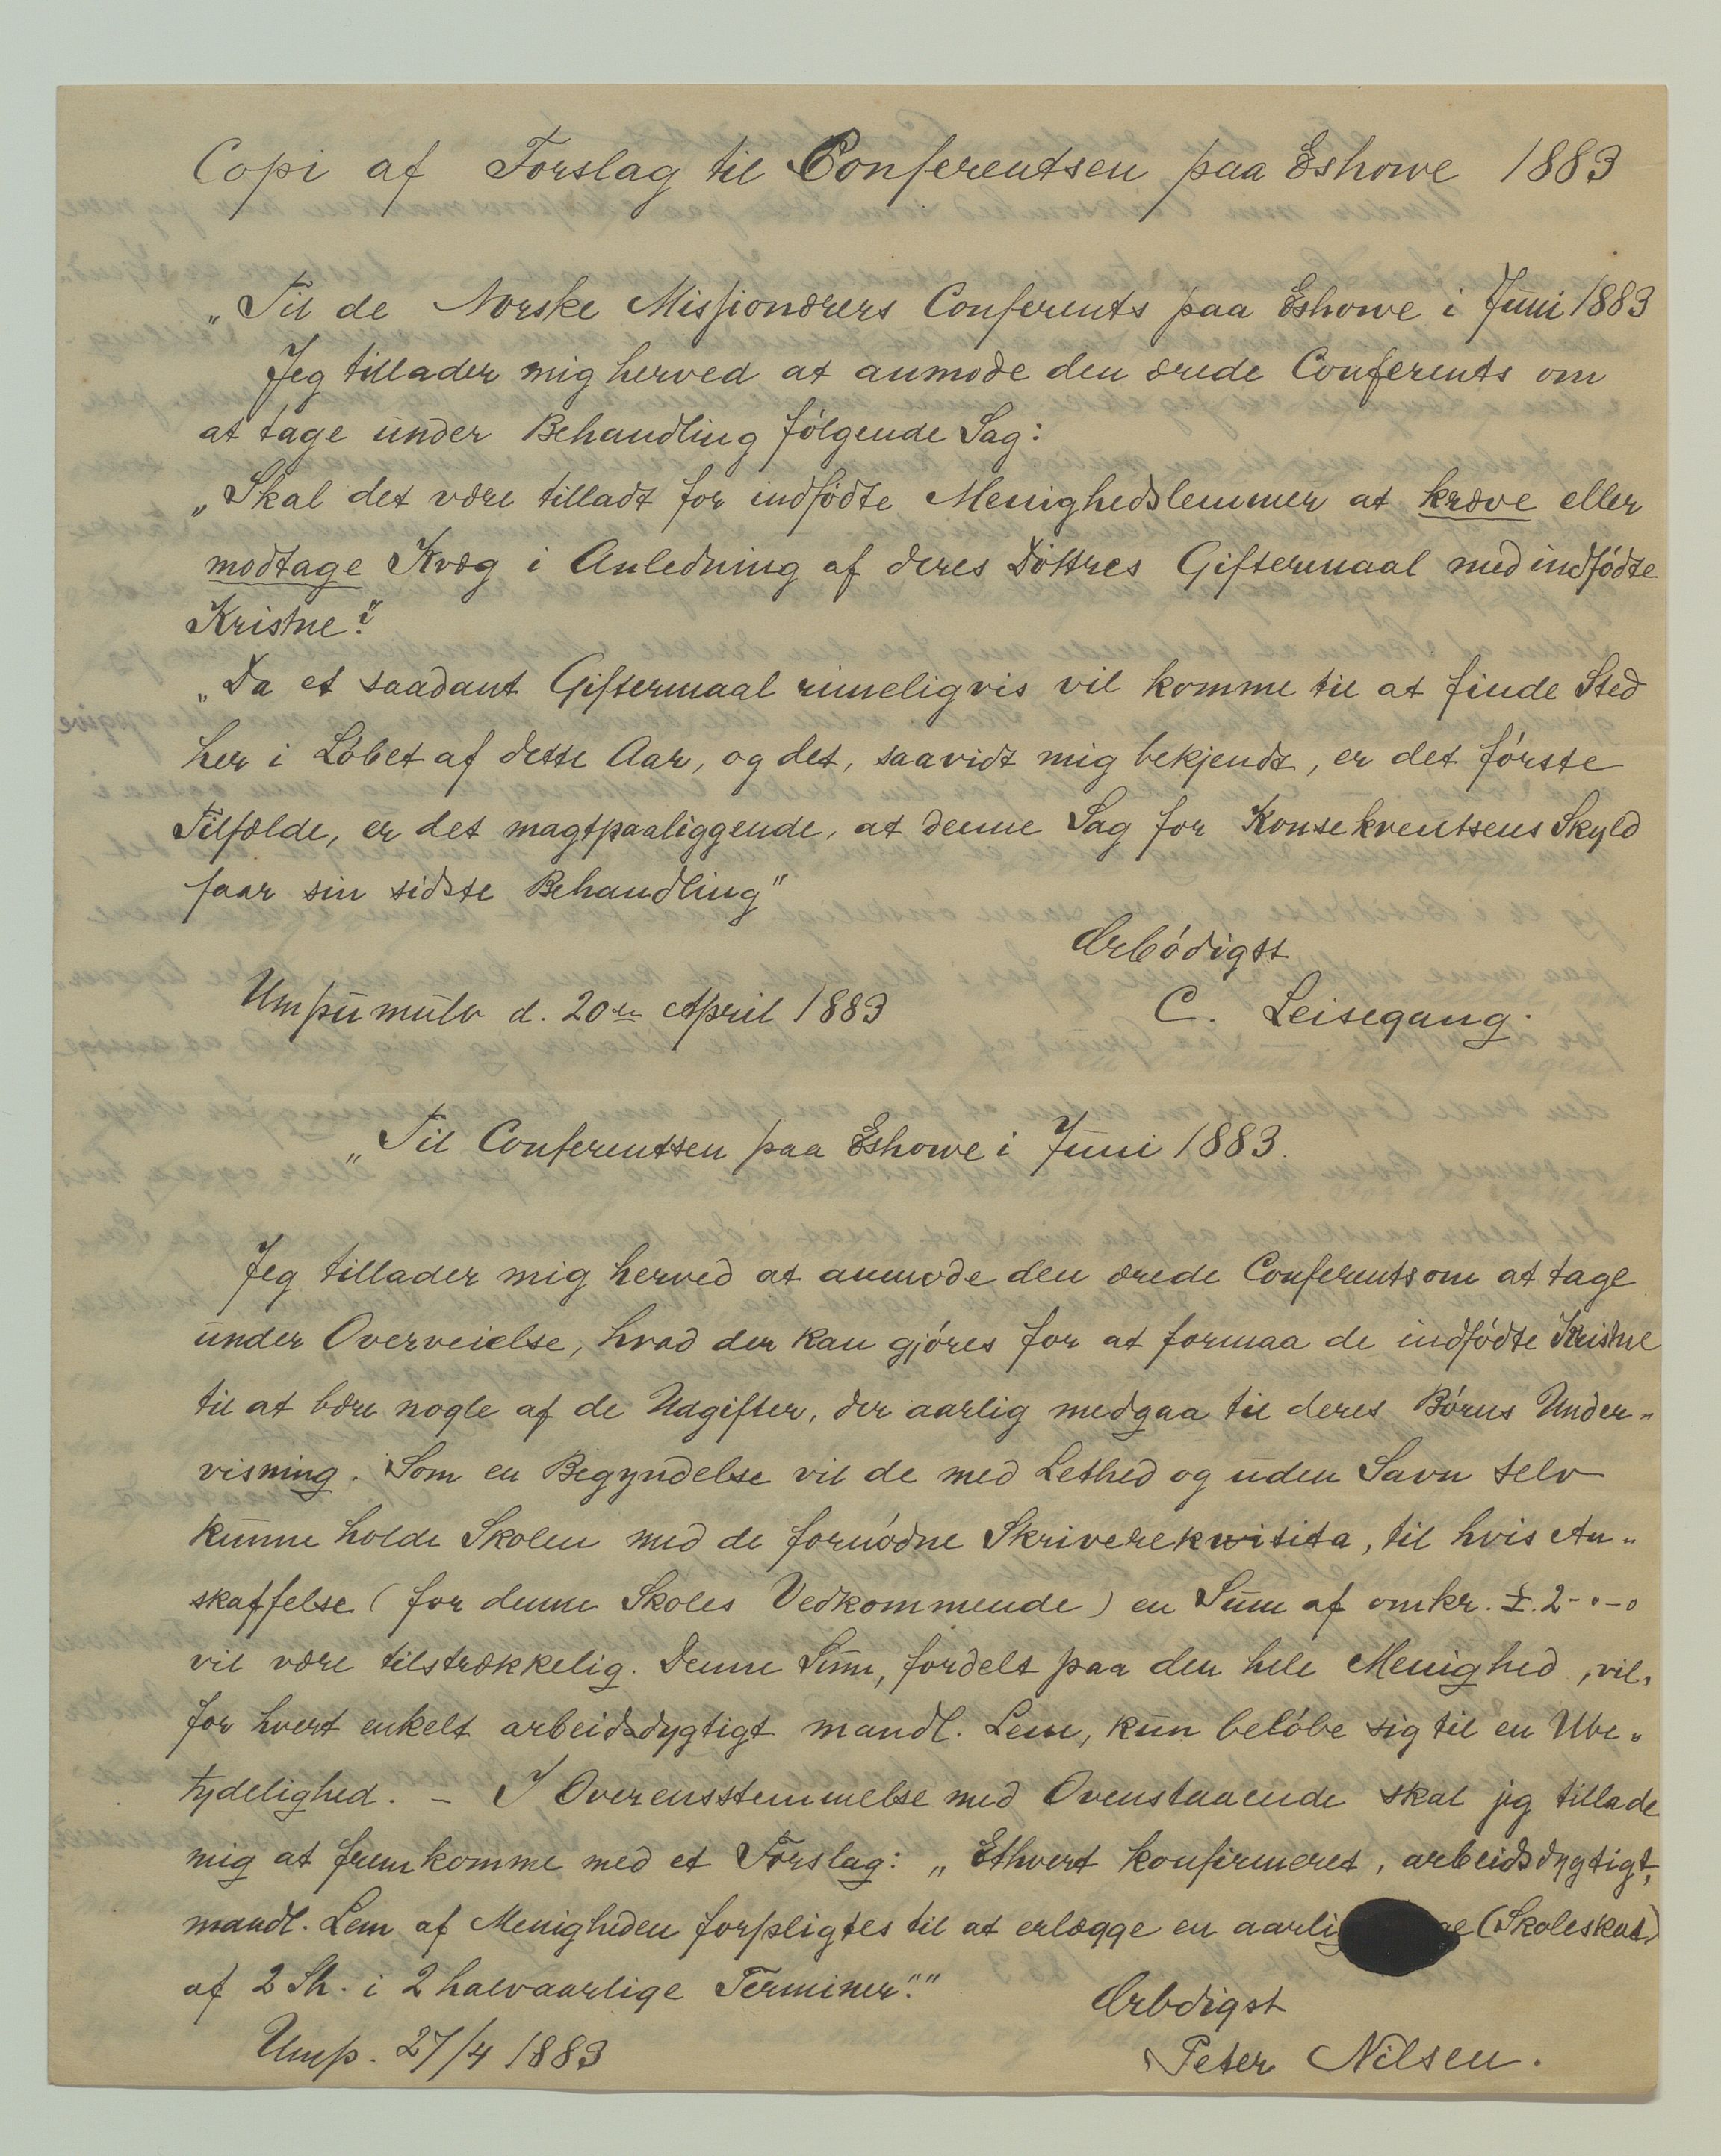 Copi af Forslag til Conferentsen paa Eshowe 1883
„Til de Norske Missionærers Conferents paa Eshowe i Juni 1883
Jeg tillader mig herved at anmode den ærede Conferents om
at tage under Behandling følgende Sag:
„Skal det være tilladt for indfødte Menighedslemmer at kræve eller
modtage Kvæg i Anledning af deres Døttres Giftermaal med indfødte
Kristne?"
„Da et saadant Giftermaal rimeligvis vil komme til at finde Sted
her i Løbet af dette Aar, og det, saavidt mig bekjendt, er det første
Tilfælde, er det magtpaaliggende, at denne Sag for Konsekventsens Skyld
faar sin sidste Behandling"
Ærbødigst
Umpumulo d. 20de April 1883 C. Leisegang.
„Til Conferentsen paa Eshowe i Juni 1883.
Jeg tillader mig herved at anmode den ærede Conferents om at tage
under Overveielse, hvad der kan gjøres for at formaa de indfødte Kristne
til at bære nogle af de Udgifter, der aarlig medgaa til deres Børns Under„
visning. Som en Begyndelse vil de med Lethed og uden Savn selv
kunne holde Skolen med de fornødne Skriverekwisita, til hvis An„
skaffelse (for denne Skoles Vedkommende) en Sum af omkr. £. 2-0-0
vil være tilstrækkelig. Denne Sum, fordelt paa den hele Menighed, vil,
for hvert enkelt arbeidsdygtigt mandl. Lem, kun beløbe sig til en Ube„
tydelighed. – I Overensstemmelse med Ovenstaaende skal jeg tillade
mig at fremkomme med et Forslag: „Ethvert konfirmeret, arbeidsdygtigt,
mandl. Lem af Menigheden forpligtes til at erlægge en (Skoleskat)
af 2 Sh. i 2 halvaarlige Terminer.""
Ærbdigst
Ump. 27/4 1883 Peter Nilsen.